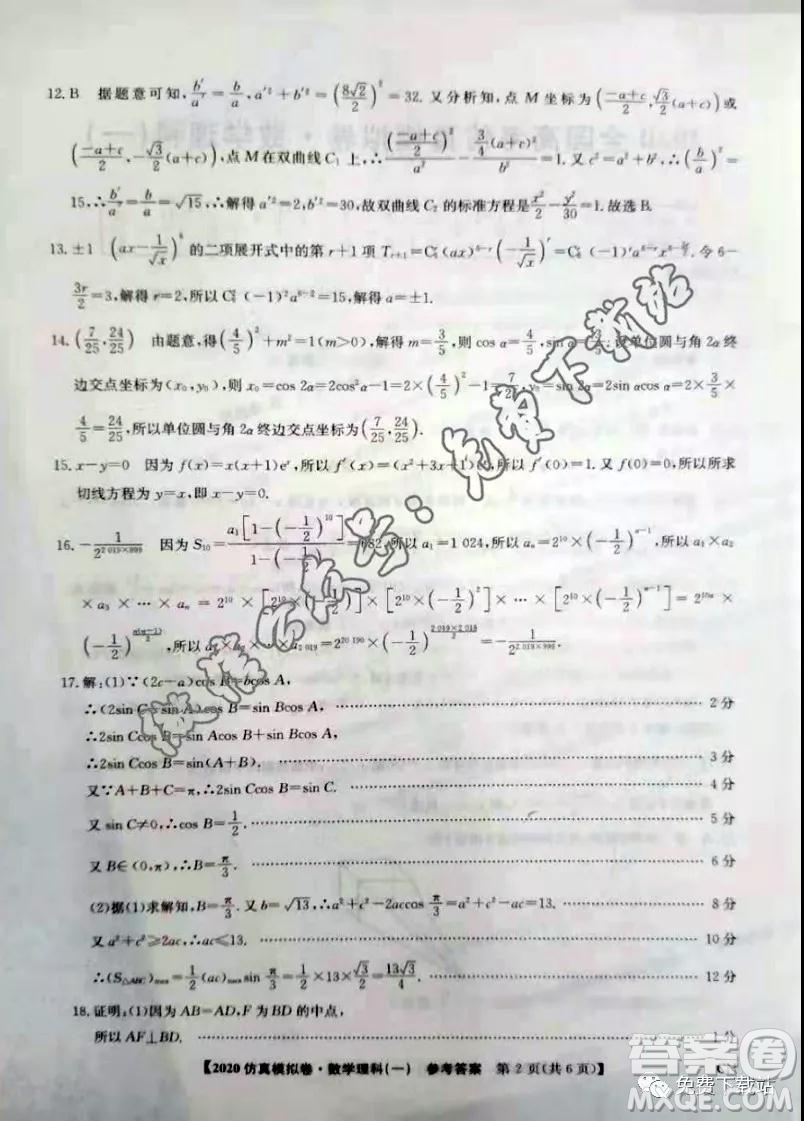 12. B 据题意可知,b′/a′=b/a,a′²+b′²=(8√2/2)²=32. 又分析知,点 M 坐标为((−a+c)/2,√3/2(a+c))或
((−a+c)/2,−√3/2(a+c)),点 M 在双曲线 C₁ 上,∴((−a+c)/2)²/a²−(3/4(a+c)²)/b²=1. 又 c²=a²+b²,∴(b/a)²=
15,∴b′/a′=b/a=√15,∴解得 a′²=2,b′²=30,故双曲线 C₂ 的标准方程是x²/2−y²/30=1. 故选 B.
13. ±1 (ax−1/√x)⁶ 的二项展开式中的第 r+1 项 Tᵣ₊₁=C₆ʳ(ax)⁶⁻ʳ(−1/√x)ʳ=C₆ʳ(−1)ʳa⁶⁻ʳx^(6−3r/2). 令 6−
3r/2=3,解得 r=2,所以 C₆²(−1)²a⁶⁻²=15,解得 a=±1.
14. (7/25,24/25) 由题意,得(4/5)²+m²=1(m>0),解得 m=3/5,则 cos α=4/5,sin α=3/5. 设单位圆与角 2α 终
边交点坐标为(x₀,y₀),则 x₀=cos 2α=2cos²α−1=2×(4/5)²−1=7/25,y₀=sin 2α=2sin αcos α=2×3/5×
4/5=24/25,所以单位圆与角 2α 终边交点坐标为(7/25,24/25).
15. x−y=0 因为 f(x)=x(x+1)eˣ,所以 f′(x)=(x²+3x+1)eˣ,所以 f′(0)=1. 又 f(0)=0,所以所求
切线方程为 y=x,即 x−y=0.
16. −1/2^(2 019×999) 因为 S₁₀=a₁[1−(−1/2)¹⁰]/(1−(−1/2))=682,所以 a₁=1 024,所以 aₙ=2¹⁰×(−1/2)ⁿ⁻¹,所以 a₁×a₂
×a₃×⋯×aₙ=2¹⁰×[2¹⁰×(−1/2)]×[2¹⁰×(−1/2)²]×⋯×[2¹⁰×(−1/2)ⁿ⁻¹]=2¹⁰ⁿ×
(−1/2)^(n(n−1)/2),所以 a₁×a₂×⋯×a₂ ₀₁₉=2^(20 190)×(−1/2)^(2 019×2 018/2)=−1/2^(2 019×999).
17. 解:(1)∵(2c−a)cos B=bcos A,
∴(2sin C−sin A)cos B=sin Bcos A, 2 分
∴2sin Ccos B=sin Acos B+sin Bcos A,
∴2sin Ccos B=sin(A+B). 3 分
又∵A+B+C=π,∴2sin Ccos B=sin C. 4 分
又 sin C≠0,∴cos B=1/2. 5 分
又 B∈(0,π),∴B=π/3. 6 分
(2)据(1)求解知,B=π/3. 又 b=√13,∴a²+c²−2accos π/3=a²+c²−ac=13. 8 分
又 a²+c²≥2ac,∴ac≤13. 10 分
∴(S△ABC)max=1/2(ac)max sin π/3=1/2×13×√3/2=13√3/4. 12 分
18. 证明:(1)因为 AB=AD,F 为 BD 的中点,
所以 AF⊥BD. 1 分
【2020 仿真模拟卷·数学理科(一) 参考答案 第 2 页(共 6 页)】
免费下载站
答案圈
MXQE.COM